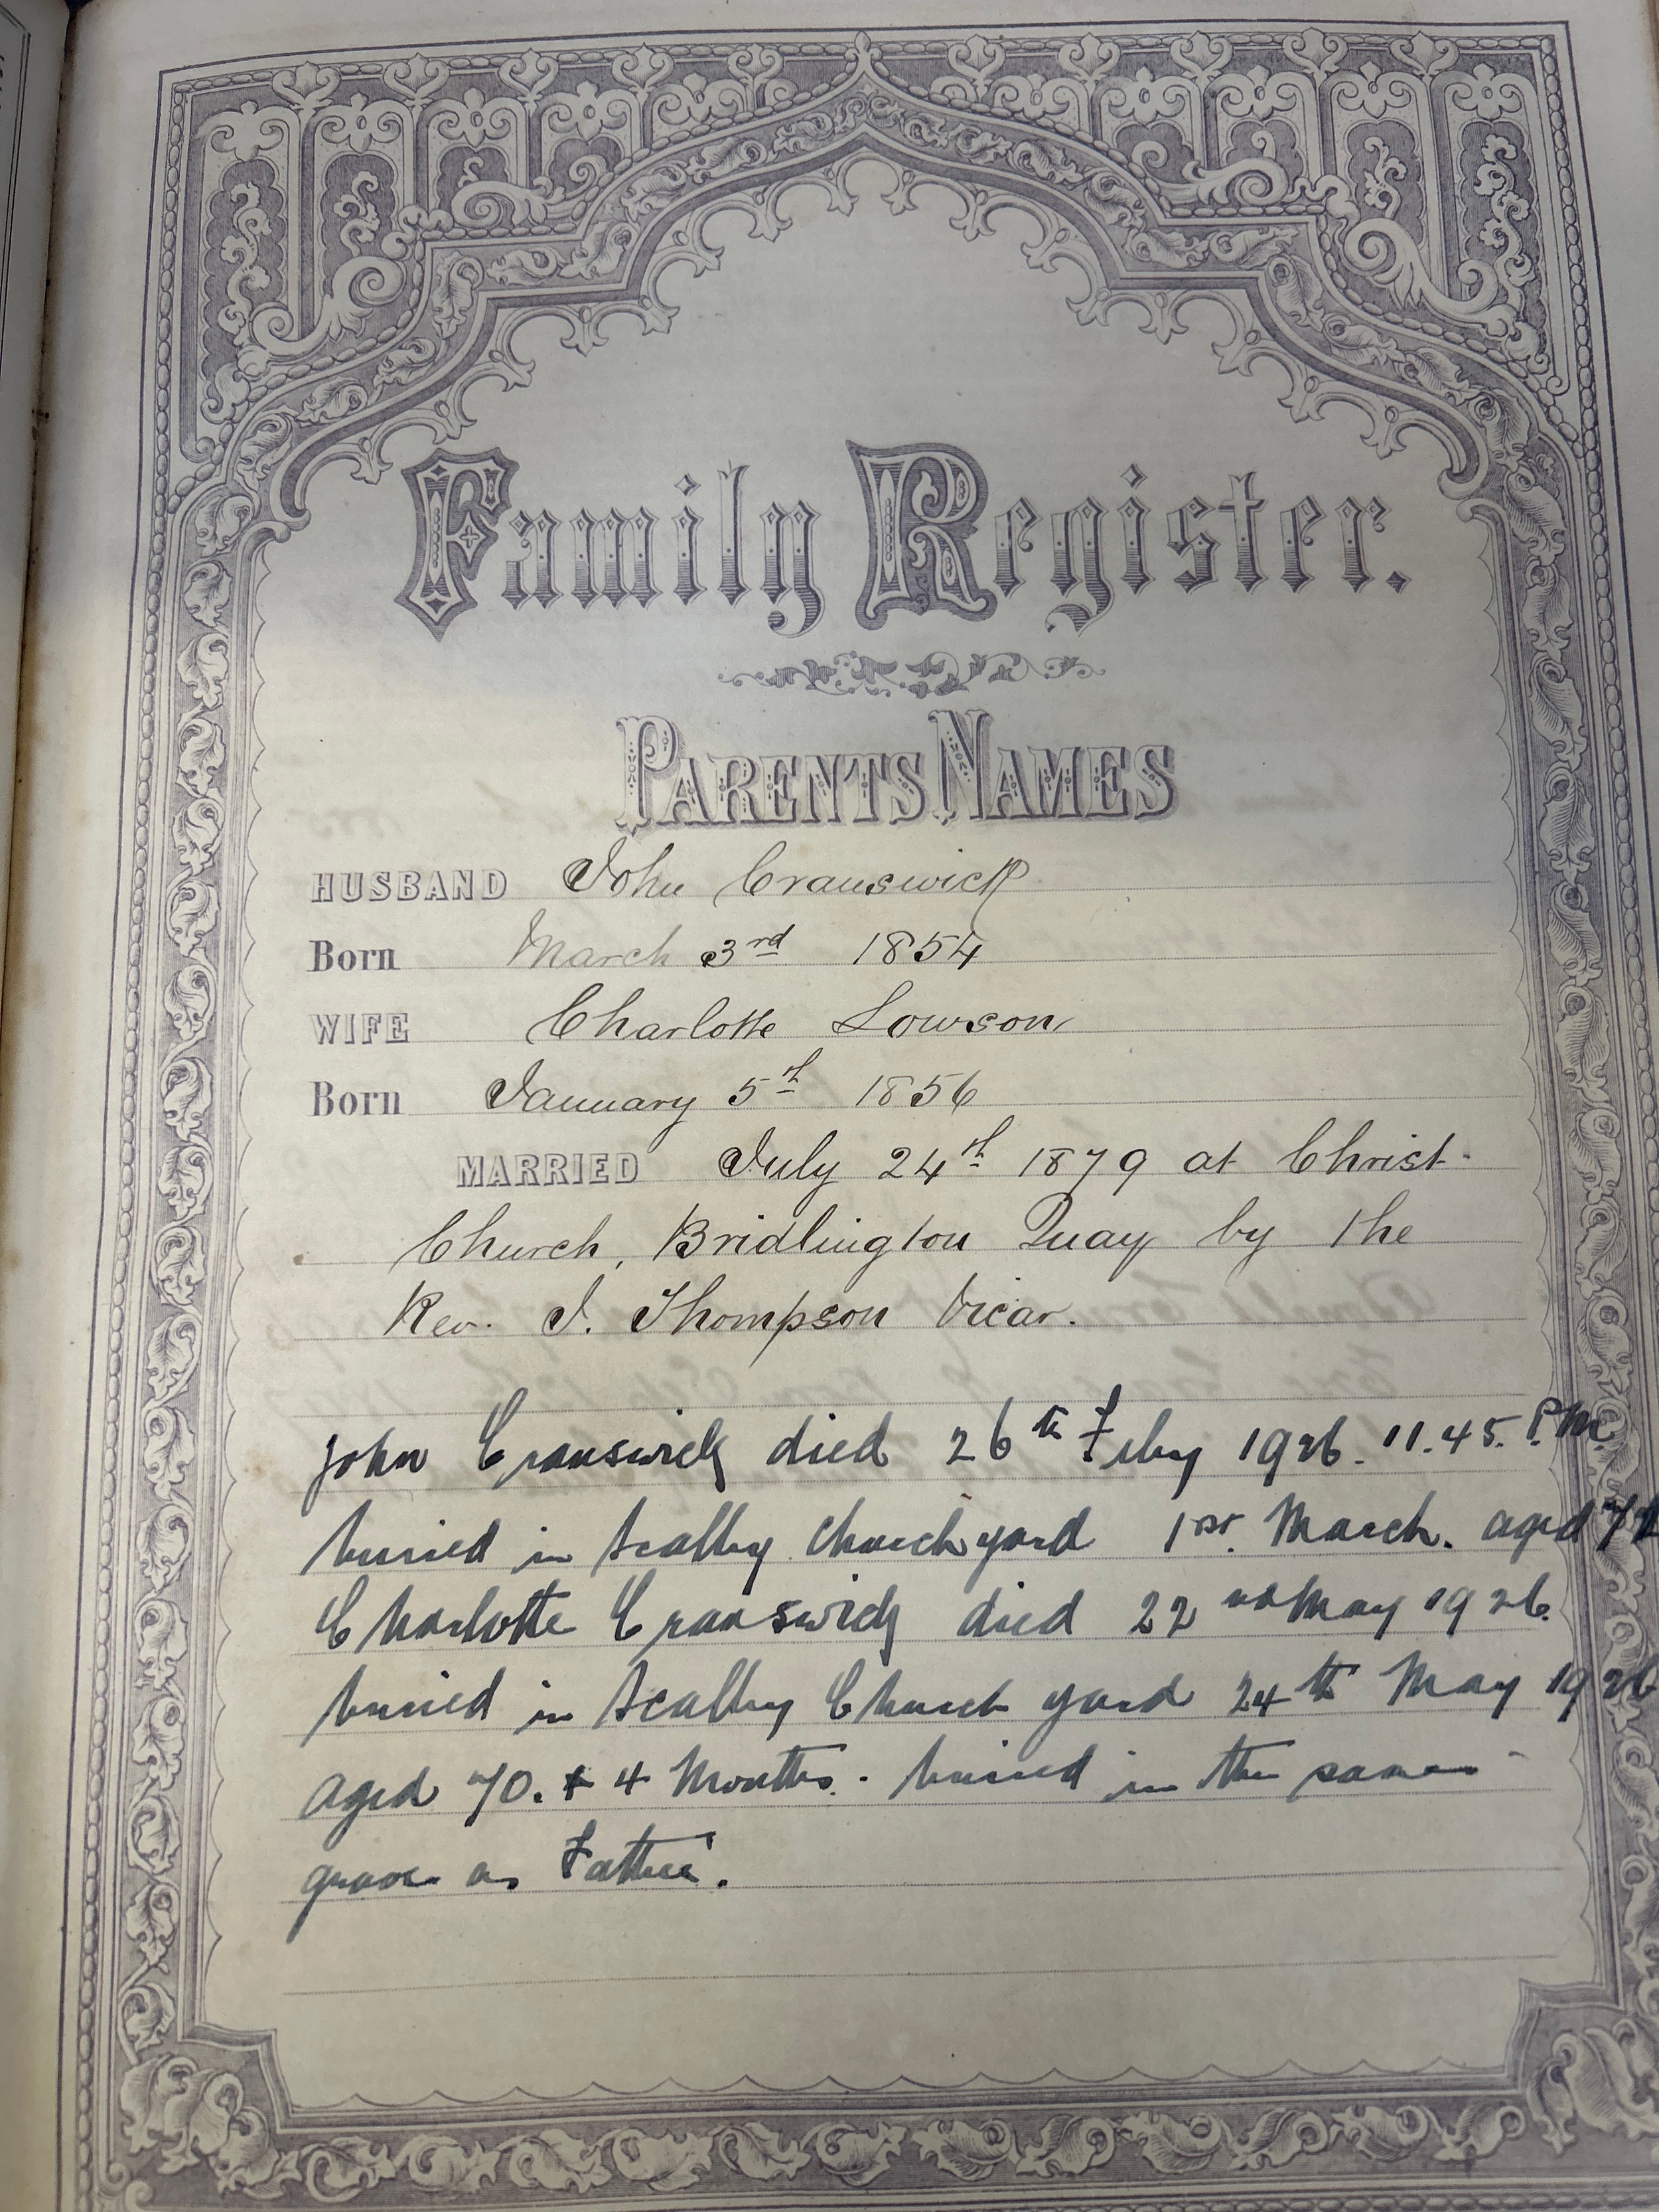 Family Register.
PARENTS NAMES
HUSBAND John Cranswick
Born March 3rd 1854
WIFE Charlotte Lowson
Born January 5th 1856
MARRIED July 24th 1879 at Christ
Church, Bridlington Quay by the
Rev. J. Thompson Vicar.
John Cranswick died 26th Feby 1926. 11.45. P.M.
buried in Scalby Churchyard 1st. March. aged
Charlotte Cranswick died 22nd May 1926.
buried in Scalby Church yard 24th May 1926
aged 70. + 4 Months. buried in the same
grave as Father.